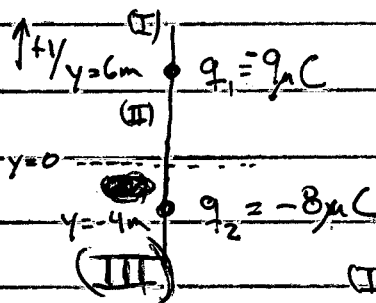 (I)
+y
y=6m q₁=9μC
(II)
y=0
y=-4m q₂ = -8μC
(III)
(I